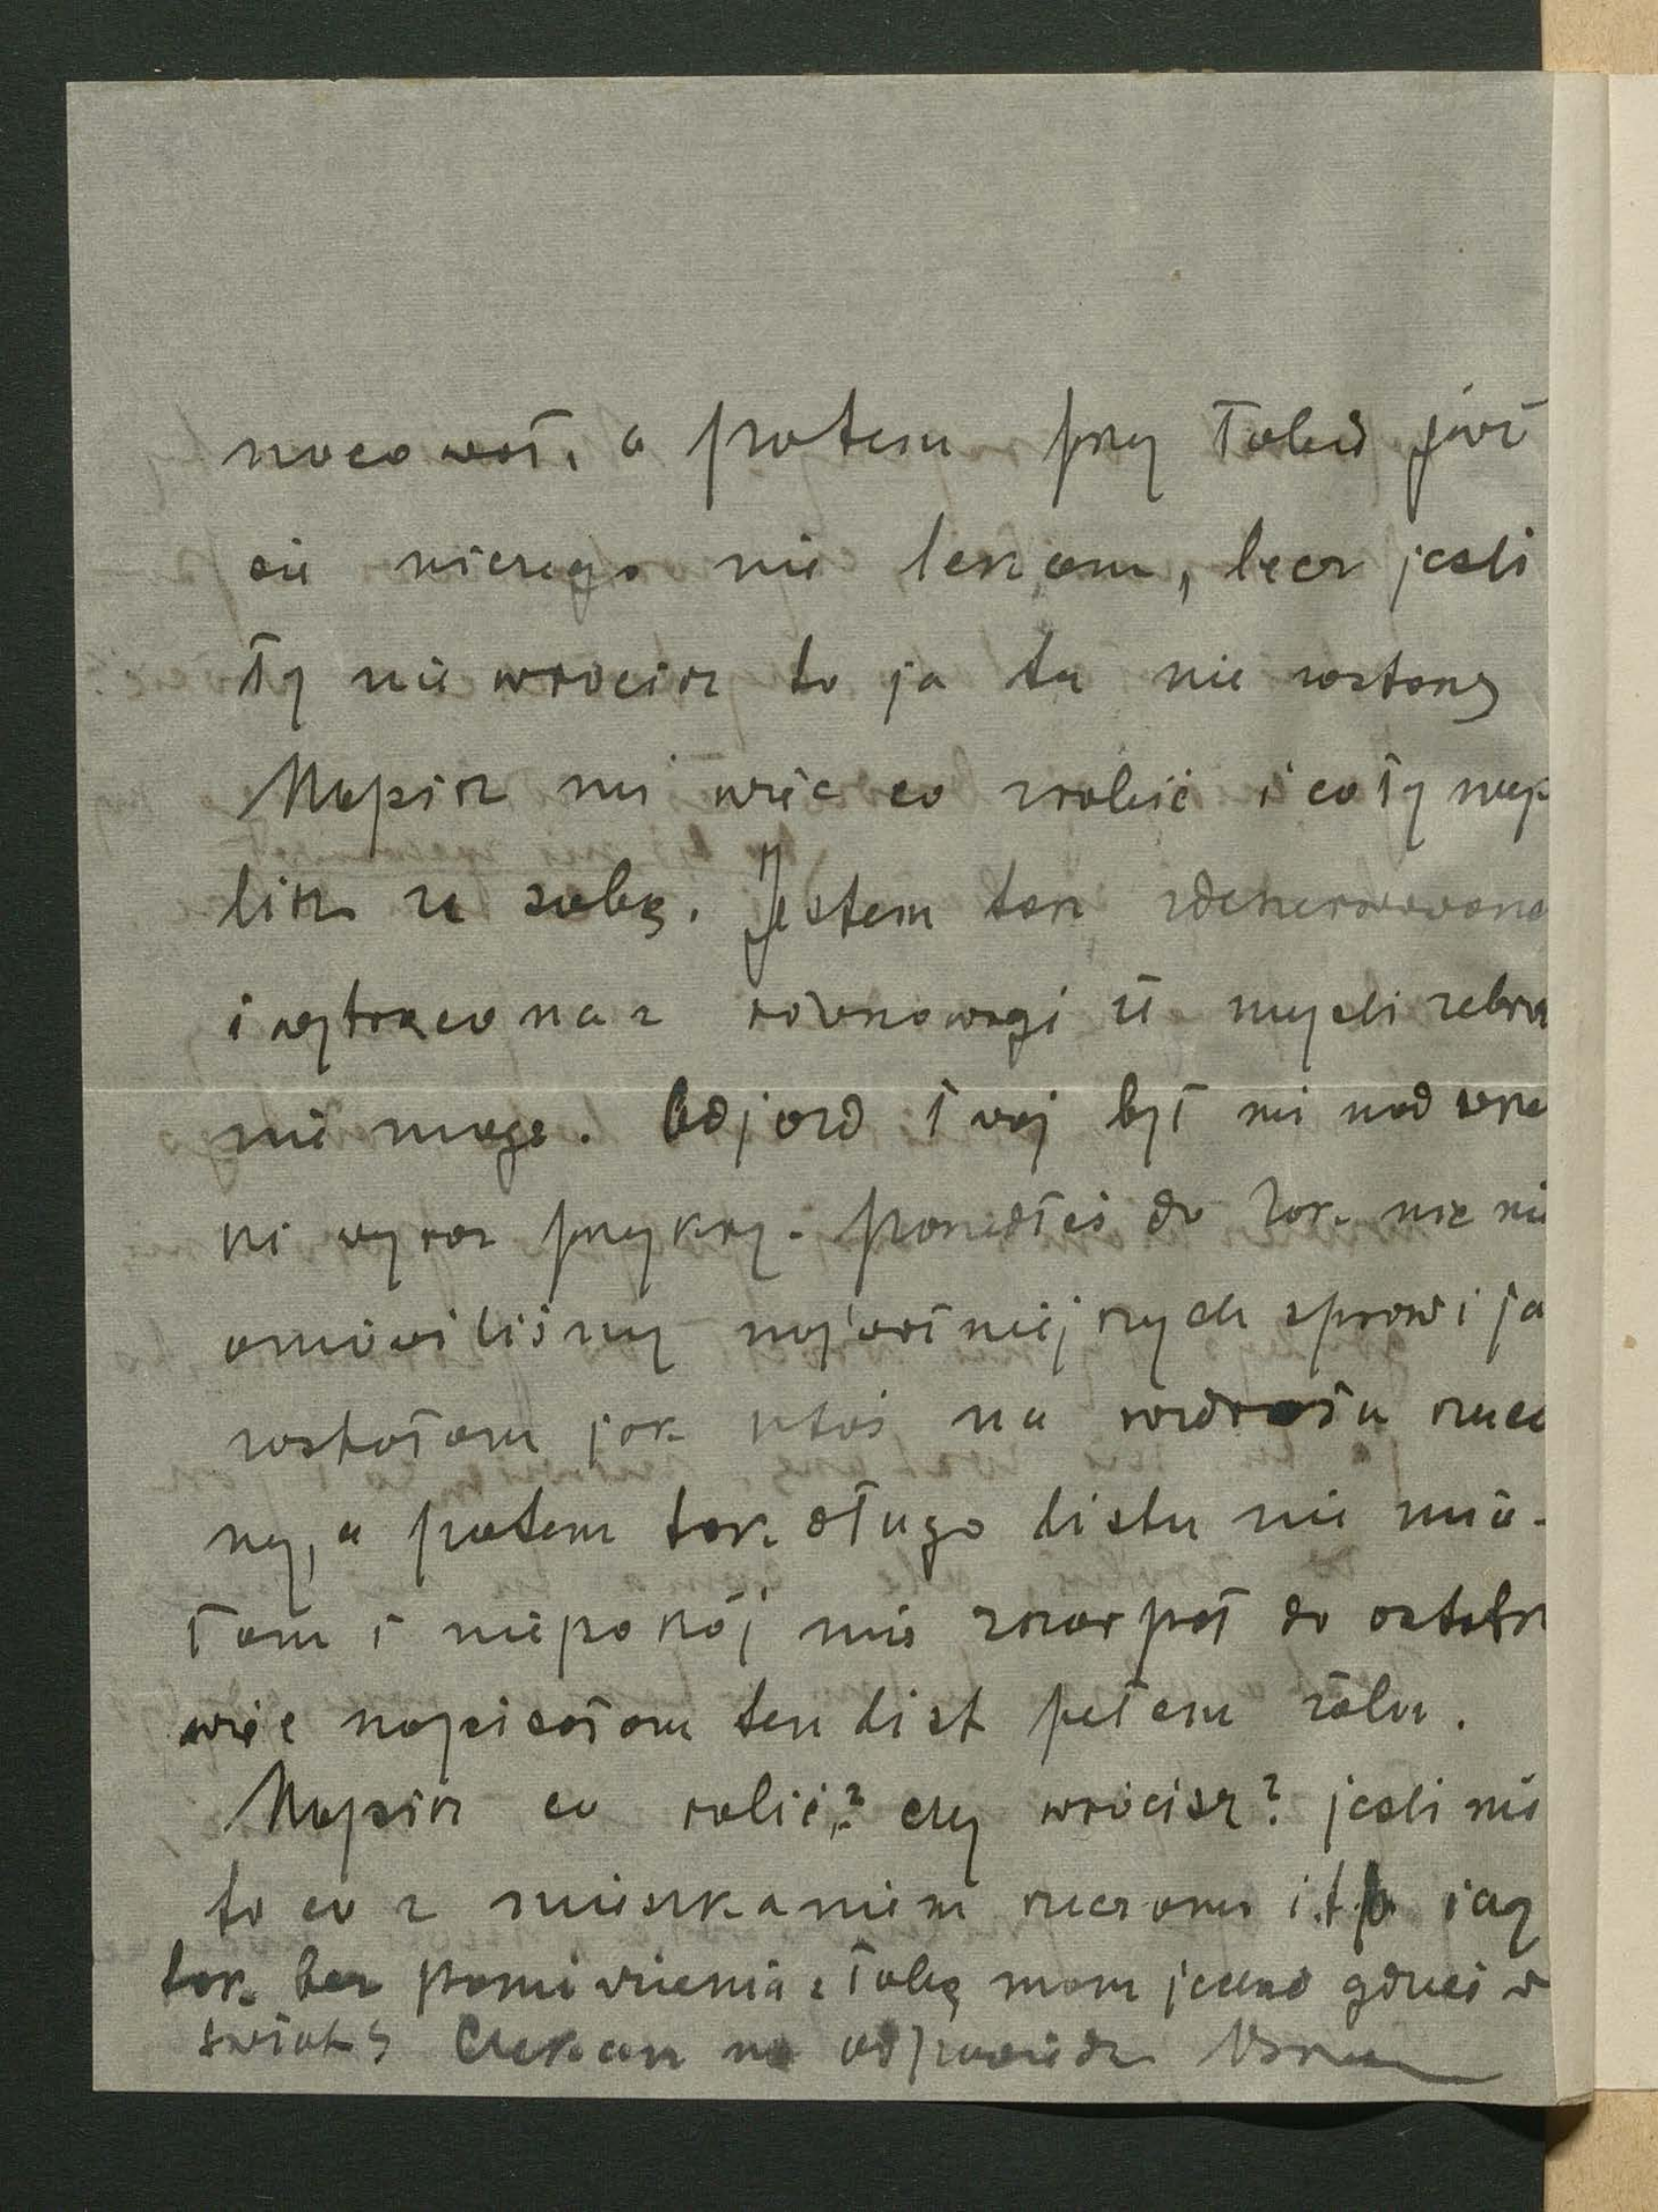 nocował, a potem przy Tobie już
się niczego nie lękam, lecz jeśli
Ty nie wrócisz to ja tu nie zostanę
Napisz mi więc co zrobić i co Ty myś
lisz ze sobą. Jestem tak zdenerwowana
i wytrącona z równowagi iż myśli zebra
nie mogę. Odjazd Twój był mi nad wsze
ki wyraz przykry. poszedłeś do Zak. nic nie
omówiliśmy najważniejszych spraw i ja
zostałam jak ktoś na rozdrożu rzuco
ny, a potem tak długo listu nie mia-
łam i niepokój mię szarpał do ostatk
więc napisałam ten list pełem żalu.
Napisz co robić? czy wrócisz? jeśli nie
to co z mieszkaniem rzeczami i.t.p. i czy
tak bez pomówienia z Tobą mam jechać gdzieś w
świat? Czekam na odpowiedź